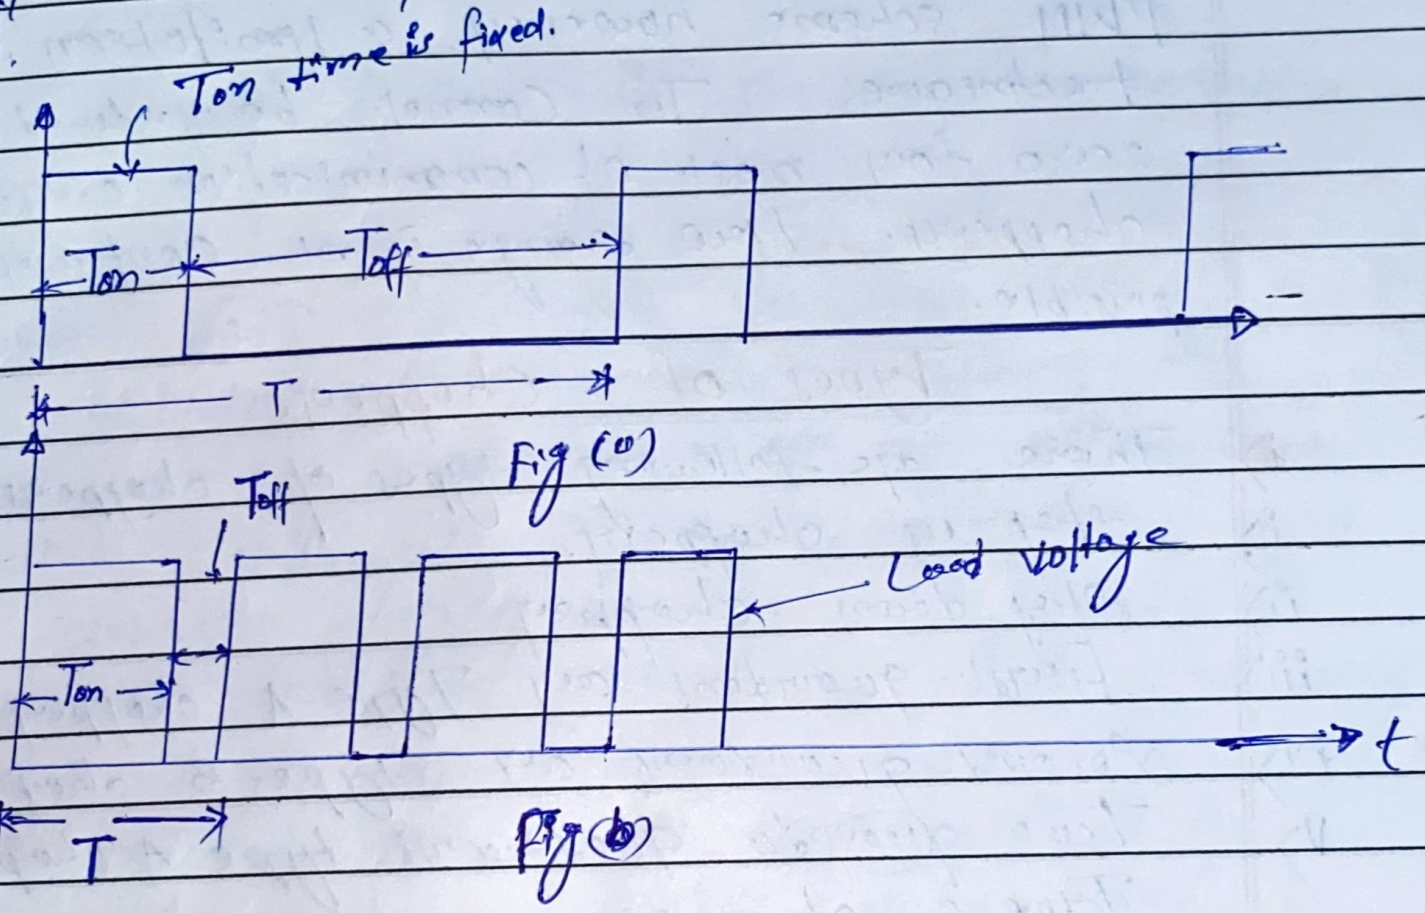 Ton time is fixed.
Ton
Toff
T
Fig (a)
Toff
Load voltage
Ton
t
T
Fig (b)